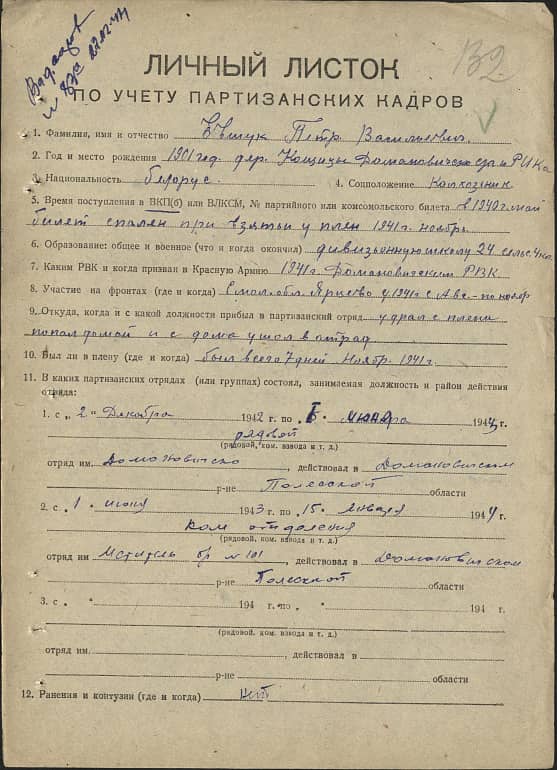 132
ЛИЧНЫЙ ЛИСТОК
ПО УЧЕТУ ПАРТИЗАНСКИХ КАДРОВ
1. Фамилия, имя и отчество Евтук Петр Васильевич.
2. Год и место рождения 1901 год. дер. Кощицы Домановическ с/с и РИКа
3. Национальность белорус. 4. Соцположение Колхозник
5. Время поступления в ВКП(б) или ВЛКСМ, № партийного или комсомольского билета в 1940 г. май
билет спален при взятьи у плен 1941 г. ноябрь
6. Образование: общее и военное (что и когда окончил) дивизьонную школу 24
7. Каким РВК и когда призван в Красную Армию 1941 г. Домановичским РВК
8. Участие на фронтах (где и когда) Смол. обл. Ярцево у 1941 г с Авг. по ноябр
9. Откуда, когда и с какой должности прибыл в партизанский отряд удрал с плена
попал домой и с дома ушол в отрад
10. Был ли в плену (где и когда) был всего 7 дней Ноябр. 1941 г.
11. В каких партизанских отрядах (или группах) состоял, занимаемая должность и район действия
отряда:
1. с „2" Декабра 1942 г. по 1943 г.
рядовой
(рядовой, ком. взвода и т. д.)
отряд им. , действовал в Домановичским
р-не Полесской области
2. с „1. июня 1943 г. по „15. Января 1944 г.
Ком отделения
(рядовой, ком. взвода и т. д.)
отряд им. Мститель бр № 101, действовал в Домановичском
р-не Полесской области
3. с „ " 194 г. по „ " 194 г.
(рядовой, ком. взвода и т. д.)
отряд им. , действовал в
р-не области
12. Ранения и контузии (где и когда) нет